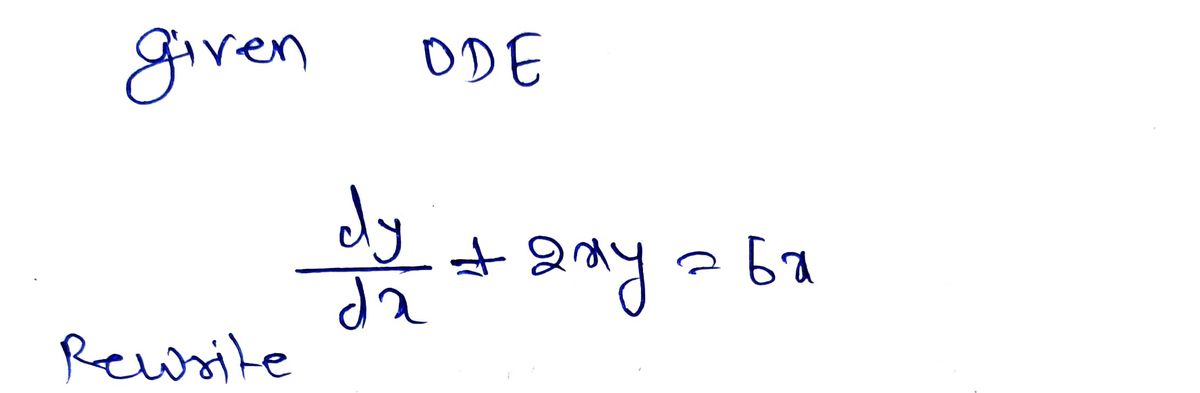 given ODE
dy/dx + 2xy = 6x
Rewrite